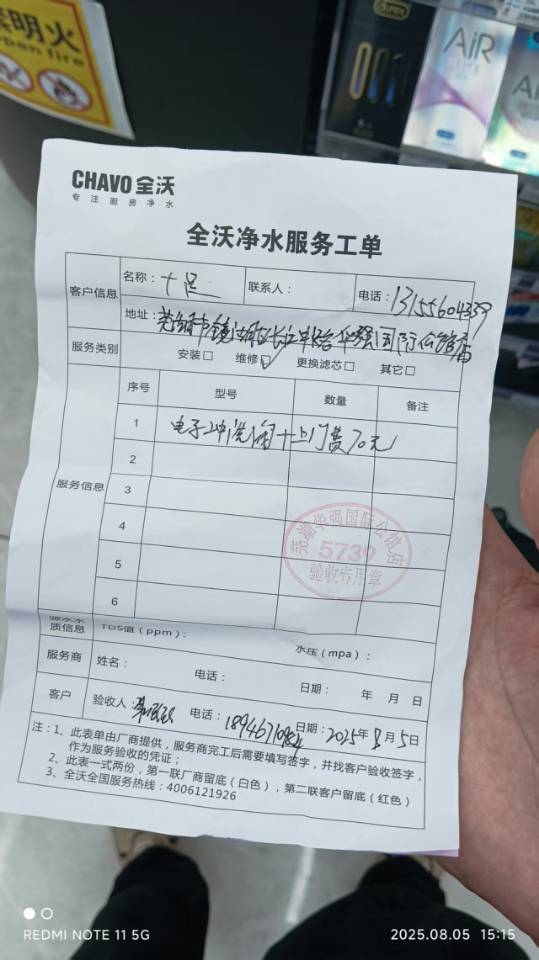 禁明火
open fire
AiR
CHAVO 全沃
专注厨房净水
全沃净水服务工单
客户信息 名称：十足 联系人： 电话：13155604339
地址：芜湖市镜湖区长江中路华强国际公馆店
服务类别 安装□ 维修☑ 更换滤芯□ 其它□
服务信息 序号 型号 数量 备注
1 电子冲洗阀+上门费70元
2
3
4
5
6
芜湖华强国际公馆店
5739
验收专用章
源水水质信息 TDS值（ppm）： 水压（mpa）：
服务商 姓名： 电话： 日期： 年 月 日
客户 验收人： 电话： 日期：2025年8月5日
注：1、此表单由厂商提供，服务商完工后需要填写签字，并找客户验收签字，
作为服务验收的凭证；
2、此表一式两份，第一联厂商留底（白色），第二联客户留底（红色）
3、全沃全国服务热线：4006121926
REDMI NOTE 11 5G
2025.08.05 15:15